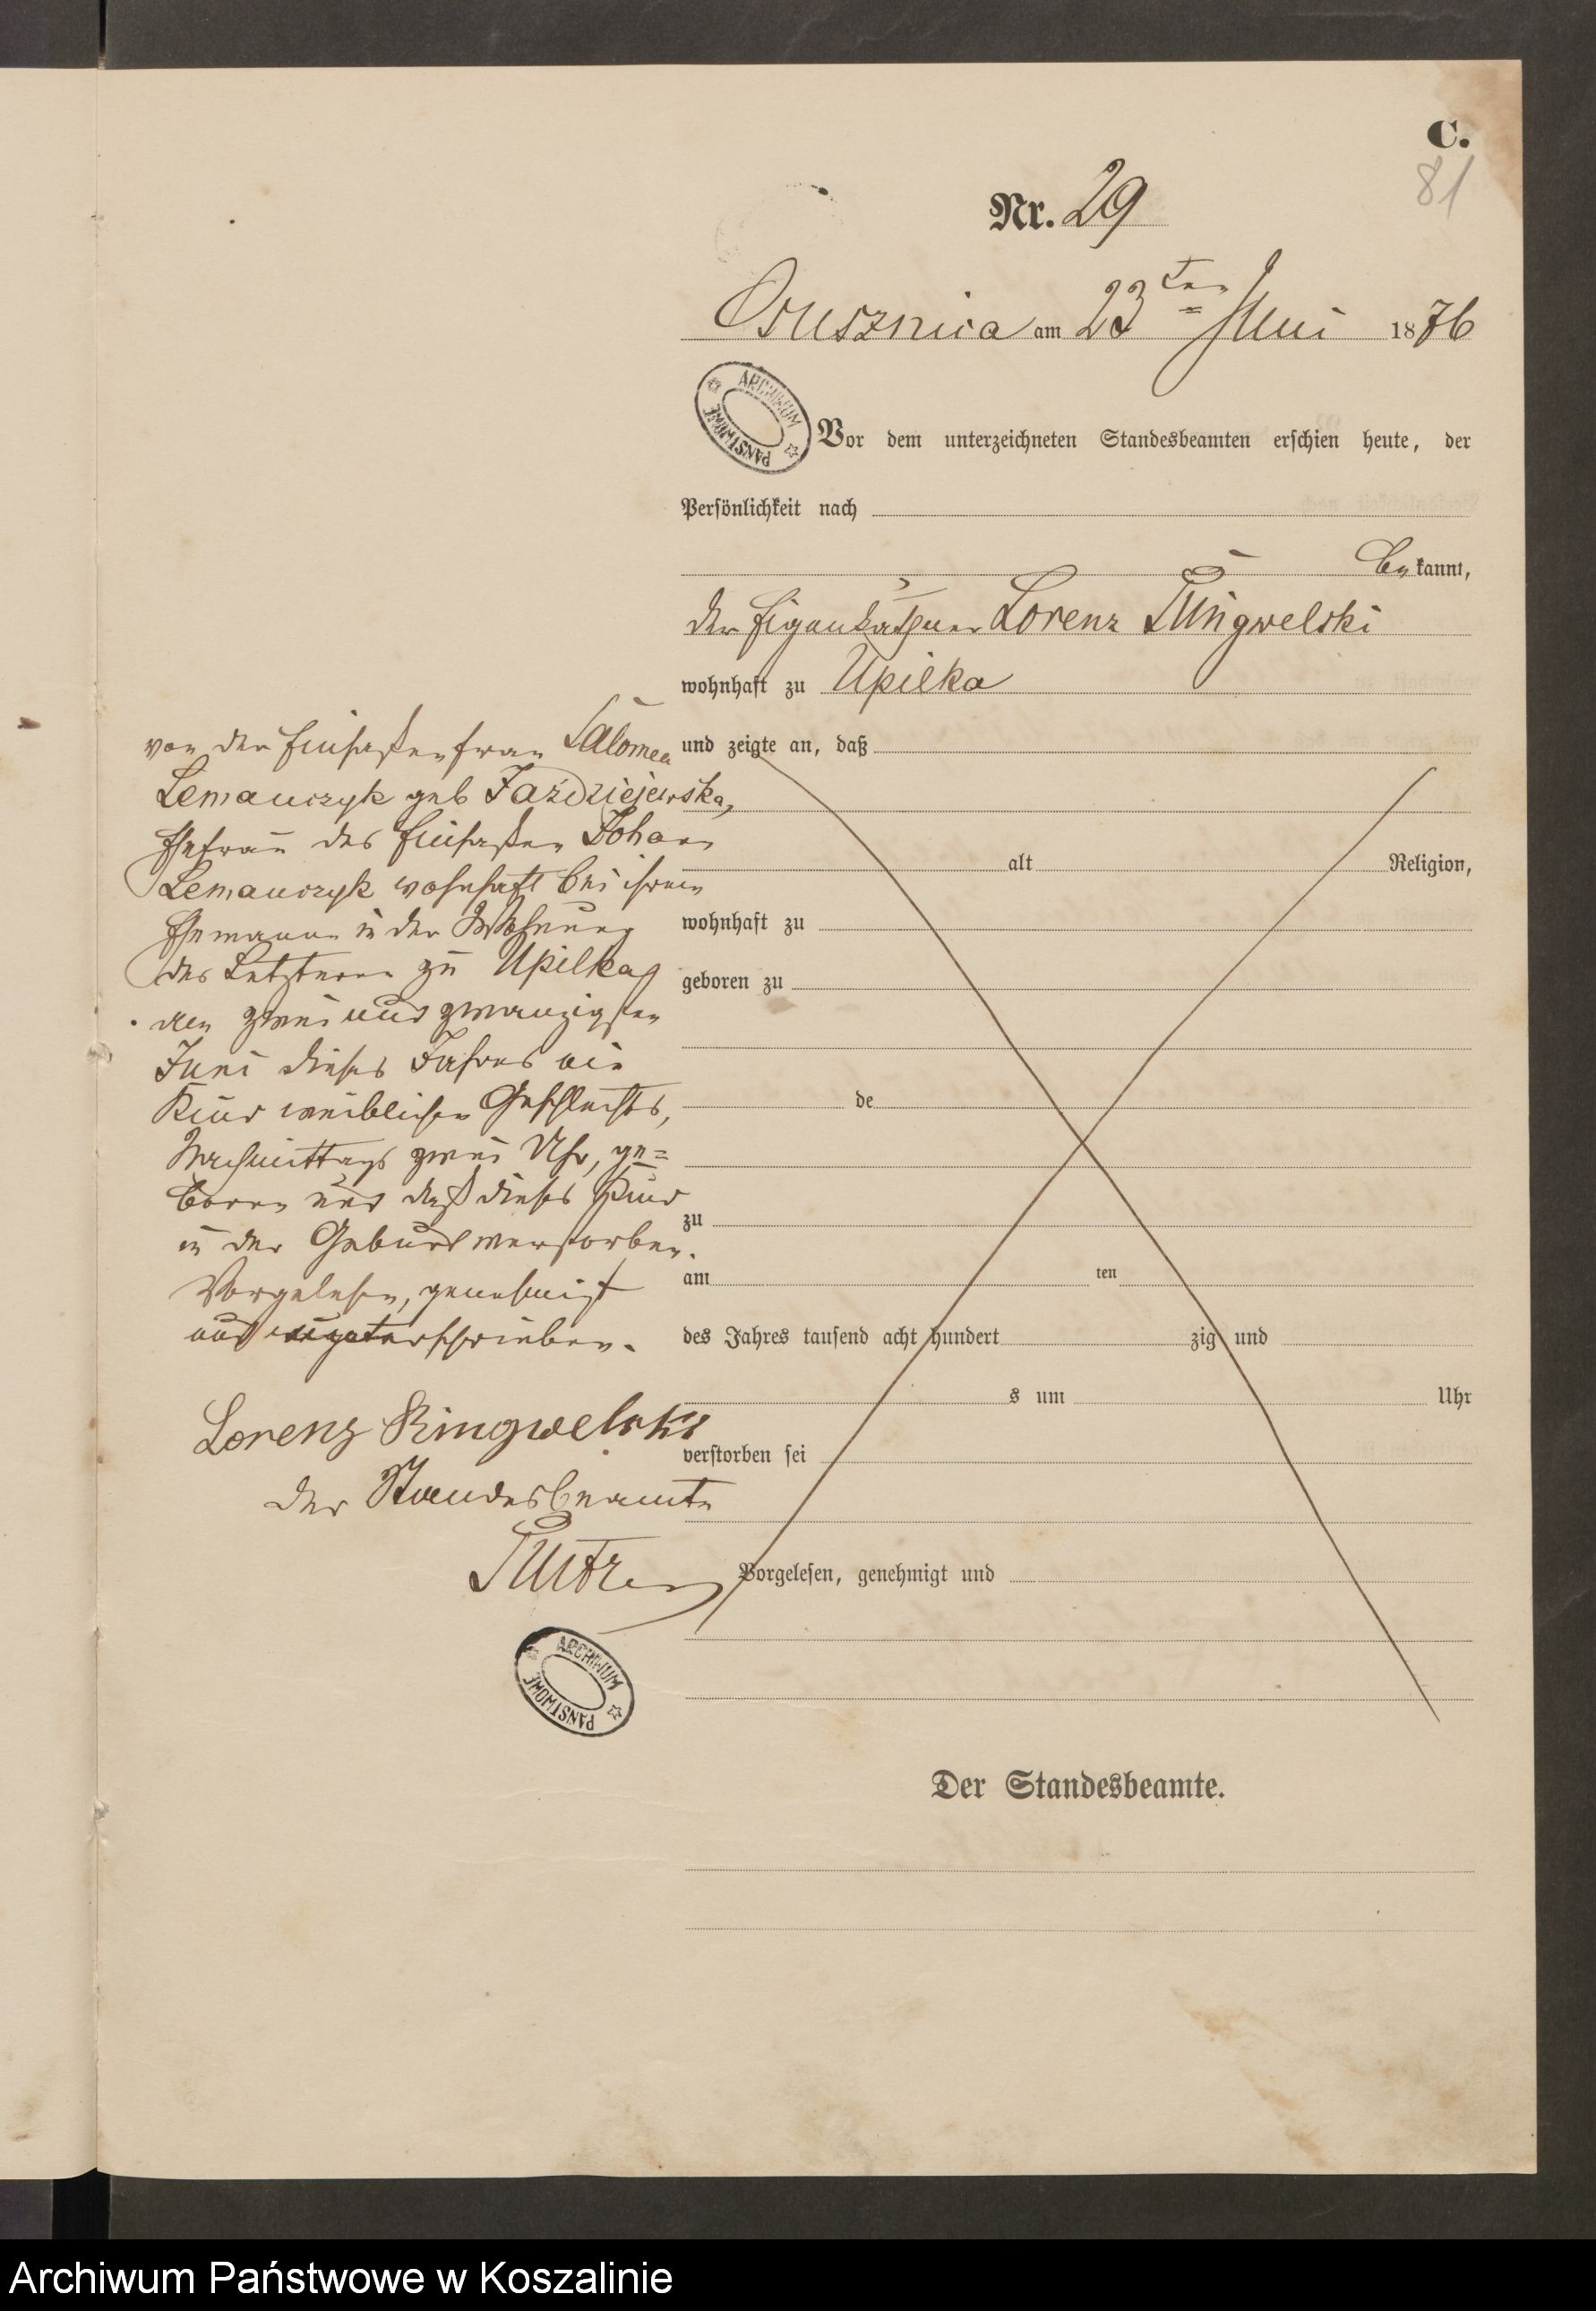 C.
81
Nr. 29
Osusznica am 23ten Juni 1876
ARCHIWUM PAŃSTWOWE
Vor dem unterzeichneten Standesbeamten erschien heute, der
Persönlichkeit nach
bekannt,
der Eigenkäthner Lorenz Ringwelski
wohnhaft zu Upilka
und zeigte an, daß
alt Religion,
wohnhaft zu
geboren zu
de
zu
am ten
des Jahres tausend acht hundert zig und
s um Uhr
verstorben sei
Vorgelesen, genehmigt und
Der Standesbeamte.
von der Einsaßenfrau Salomea
Lemanczyk geb Jazdziejewska,
Ehefrau des Einsaßen Johann
Lemanczyk wohnhaft bei ihrem
Ehemanne in der Wohnung
des Letzteren zu Upilka
den zwei und zwanzigsten
Juni dieses Jahres ein
Kind weiblichen Geschlechts,
Nachmittags zwei Uhr, ge=
boren und daß dieses Kind
in der Geburt verstorben.
Vorgelesen, genehmigt
und unterschrieben.
Lorenz Ringwelski
Der Standesbeamte
ARCHIWUM PAŃSTWOWE
Archiwum Państwowe w Koszalinie